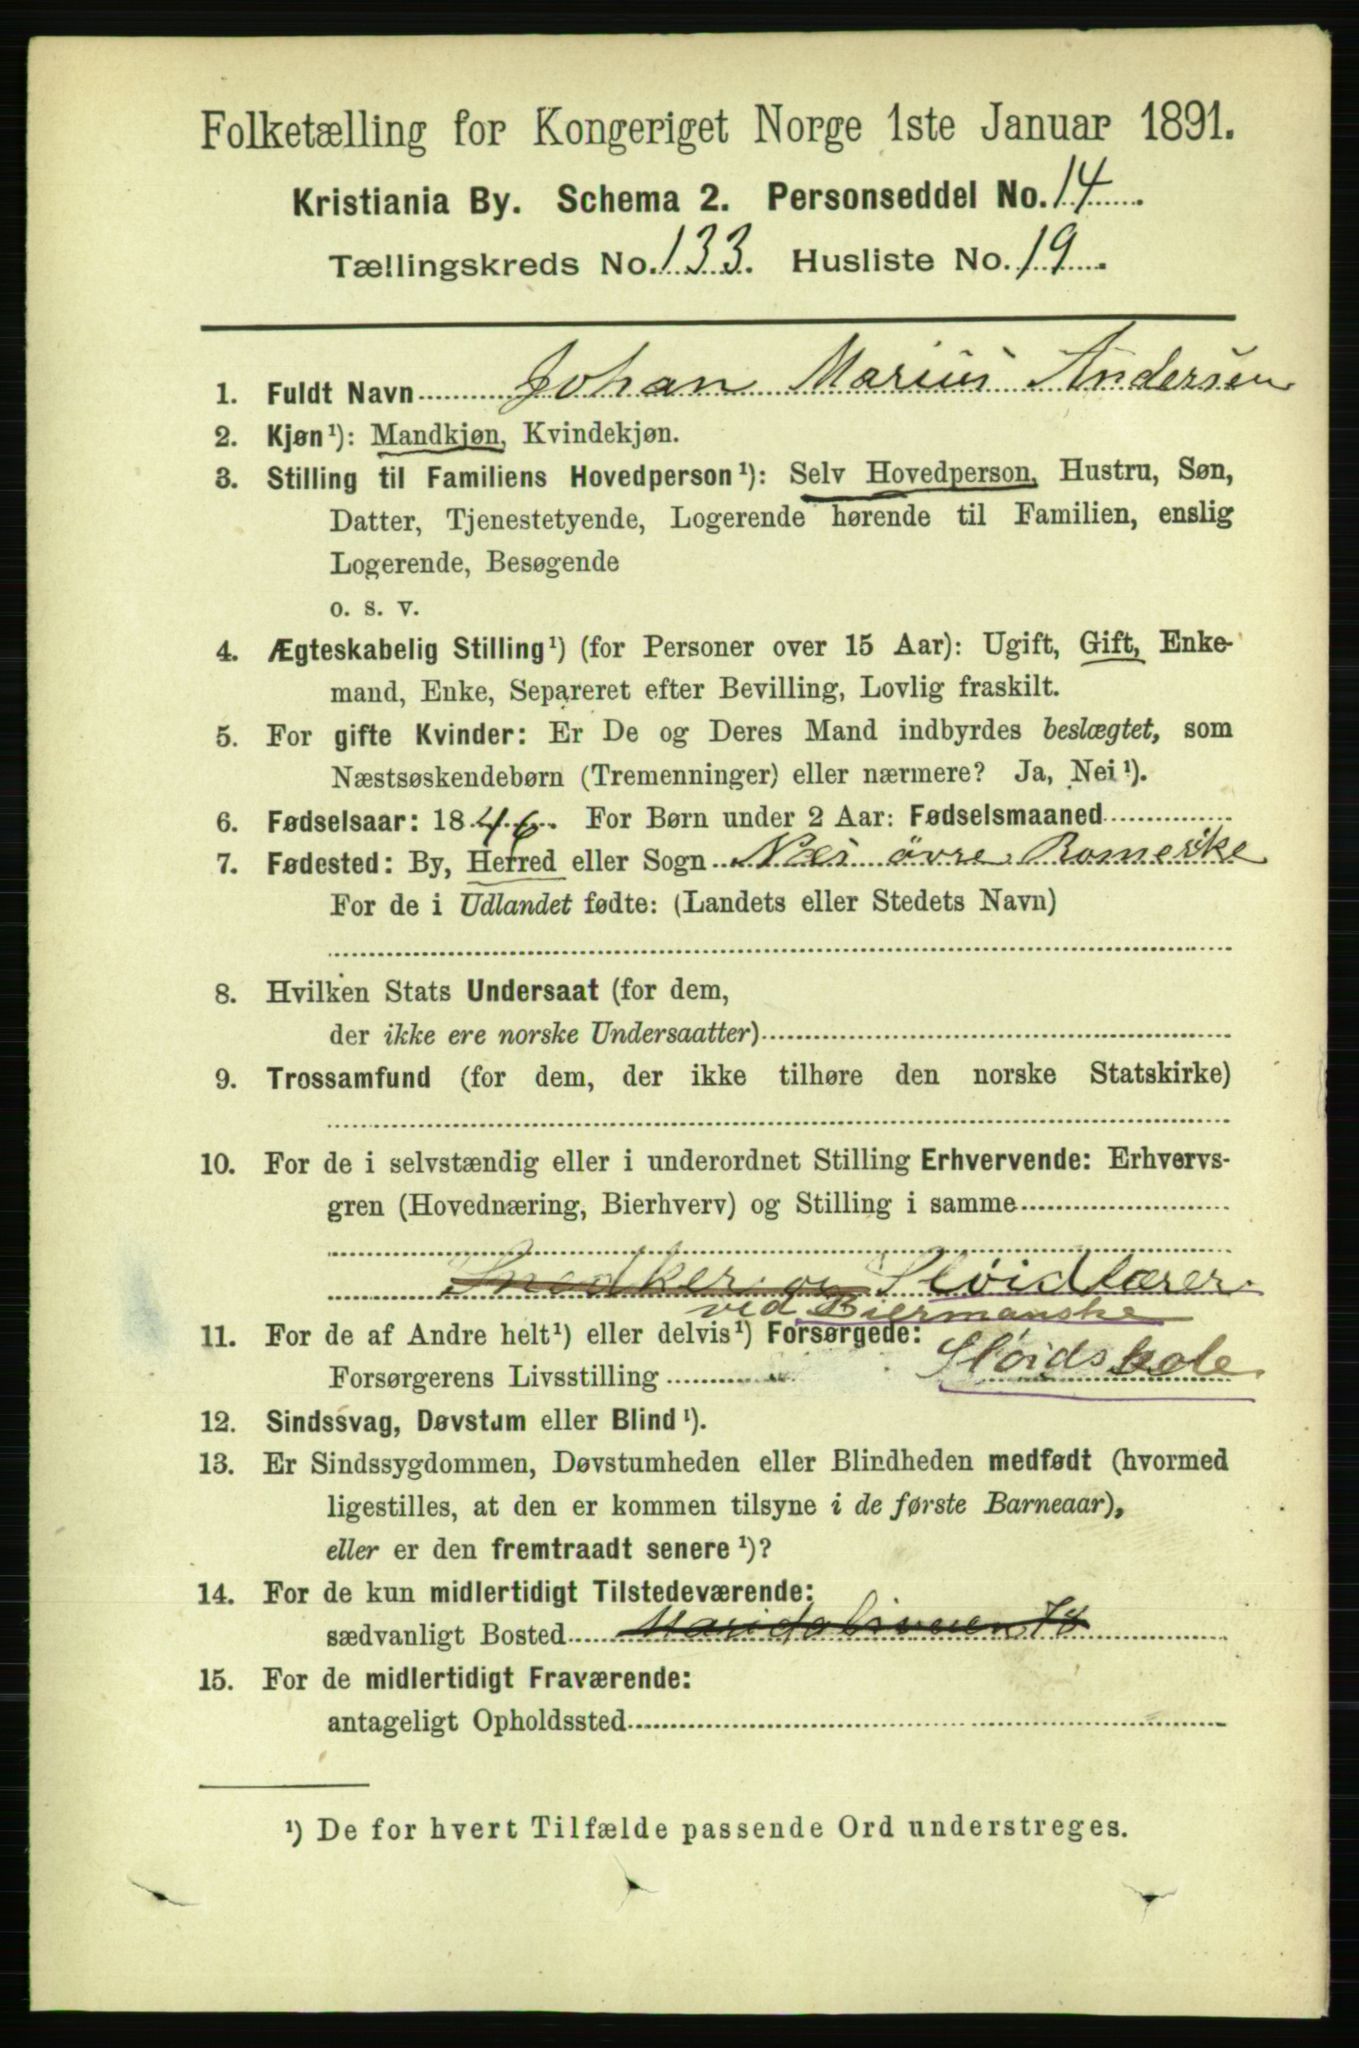 Folketælling for Kongeriget Norge 1ste Januar 1891.
Kristiania By. Schema 2. Personseddel No. 14
Tællingskreds No. 133. Husliste No. 19.
1. Fuldt Navn Johan Marius Andersen
2. Kjøn¹): Mandkjøn, Kvindekjøn.
3. Stilling til Familiens Hovedperson¹): Selv Hovedperson, Hustru, Søn,
Datter, Tjenestetyende, Logerende hørende til Familien, enslig
Logerende, Besøgende
o. s. v.
4. Ægteskabelig Stilling¹) (for Personer over 15 Aar): Ugift, Gift, Enke-
mand, Enke, Separeret efter Bevilling, Lovlig fraskilt.
5. For gifte Kvinder: Er De og Deres Mand indbyrdes beslægtet, som
Næstsøskendebørn (Tremenninger) eller nærmere? Ja, Nei¹).
6. Fødselsaar: 1846. For Børn under 2 Aar: Fødselsmaaned
7. Fødested: By, Herred eller Sogn Næs øvre Romerike
For de i Udlandet fødte: (Landets eller Stedets Navn)
8. Hvilken Stats Undersaat (for dem,
der ikke ere norske Undersaatter)
9. Trossamfund (for dem, der ikke tilhøre den norske Statskirke)
10. For de i selvstændig eller i underordnet Stilling Erhvervende: Erhvervs-
gren (Hovednæring, Bierhverv) og Stilling i samme
Snedker og Sløidlærer
ved Biermanske
11. For de af Andre helt¹) eller delvis¹) Forsørgede:
Sløidskole
Forsørgerens Livsstilling
12. Sindssvag, Døvstum eller Blind¹).
13. Er Sindssygdommen, Døvstumheden eller Blindheden medfødt (hvormed
ligestilles, at den er kommen tilsyne i de første Barneaar),
eller er den fremtraadt senere¹)?
14. For de kun midlertidigt Tilstedeværende:
sædvanligt Bosted Maridalsveien 78
15. For de midlertidigt Fraværende:
antageligt Opholdssted
¹) De for hvert Tilfælde passende Ord understreges.